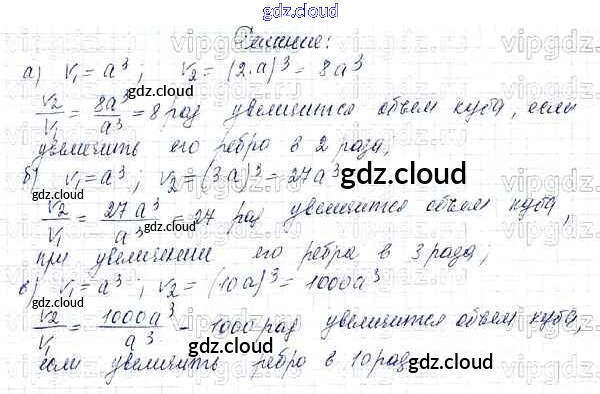 gdz.cloud
Решение:
а) V₁ = a³; V₂ = (2·a)³ = 8a³
V₂/V₁ = 8a³/a³ = 8 раз увеличится объем куба, если
увеличить его ребро в 2 раза;
б) V₁ = a³; V₂ = (3a)³ = 27a³
V₂/V₁ = 27a³/a³ = 27 раз увеличится объем куба,
при увеличении его ребра в 3 раза;
в) V₁ = a³; V₂ = (10a)³ = 1000a³
V₂/V₁ = 1000a³/a³ = 1000 раз увеличится объем куба,
если увеличить ребро в 10 раз
gdz.cloud
gdz.cloud
gdz.cloud
gdz.cloud
gdz.cloud
gdz.cloud
gdz.cloud
gdz.cloud